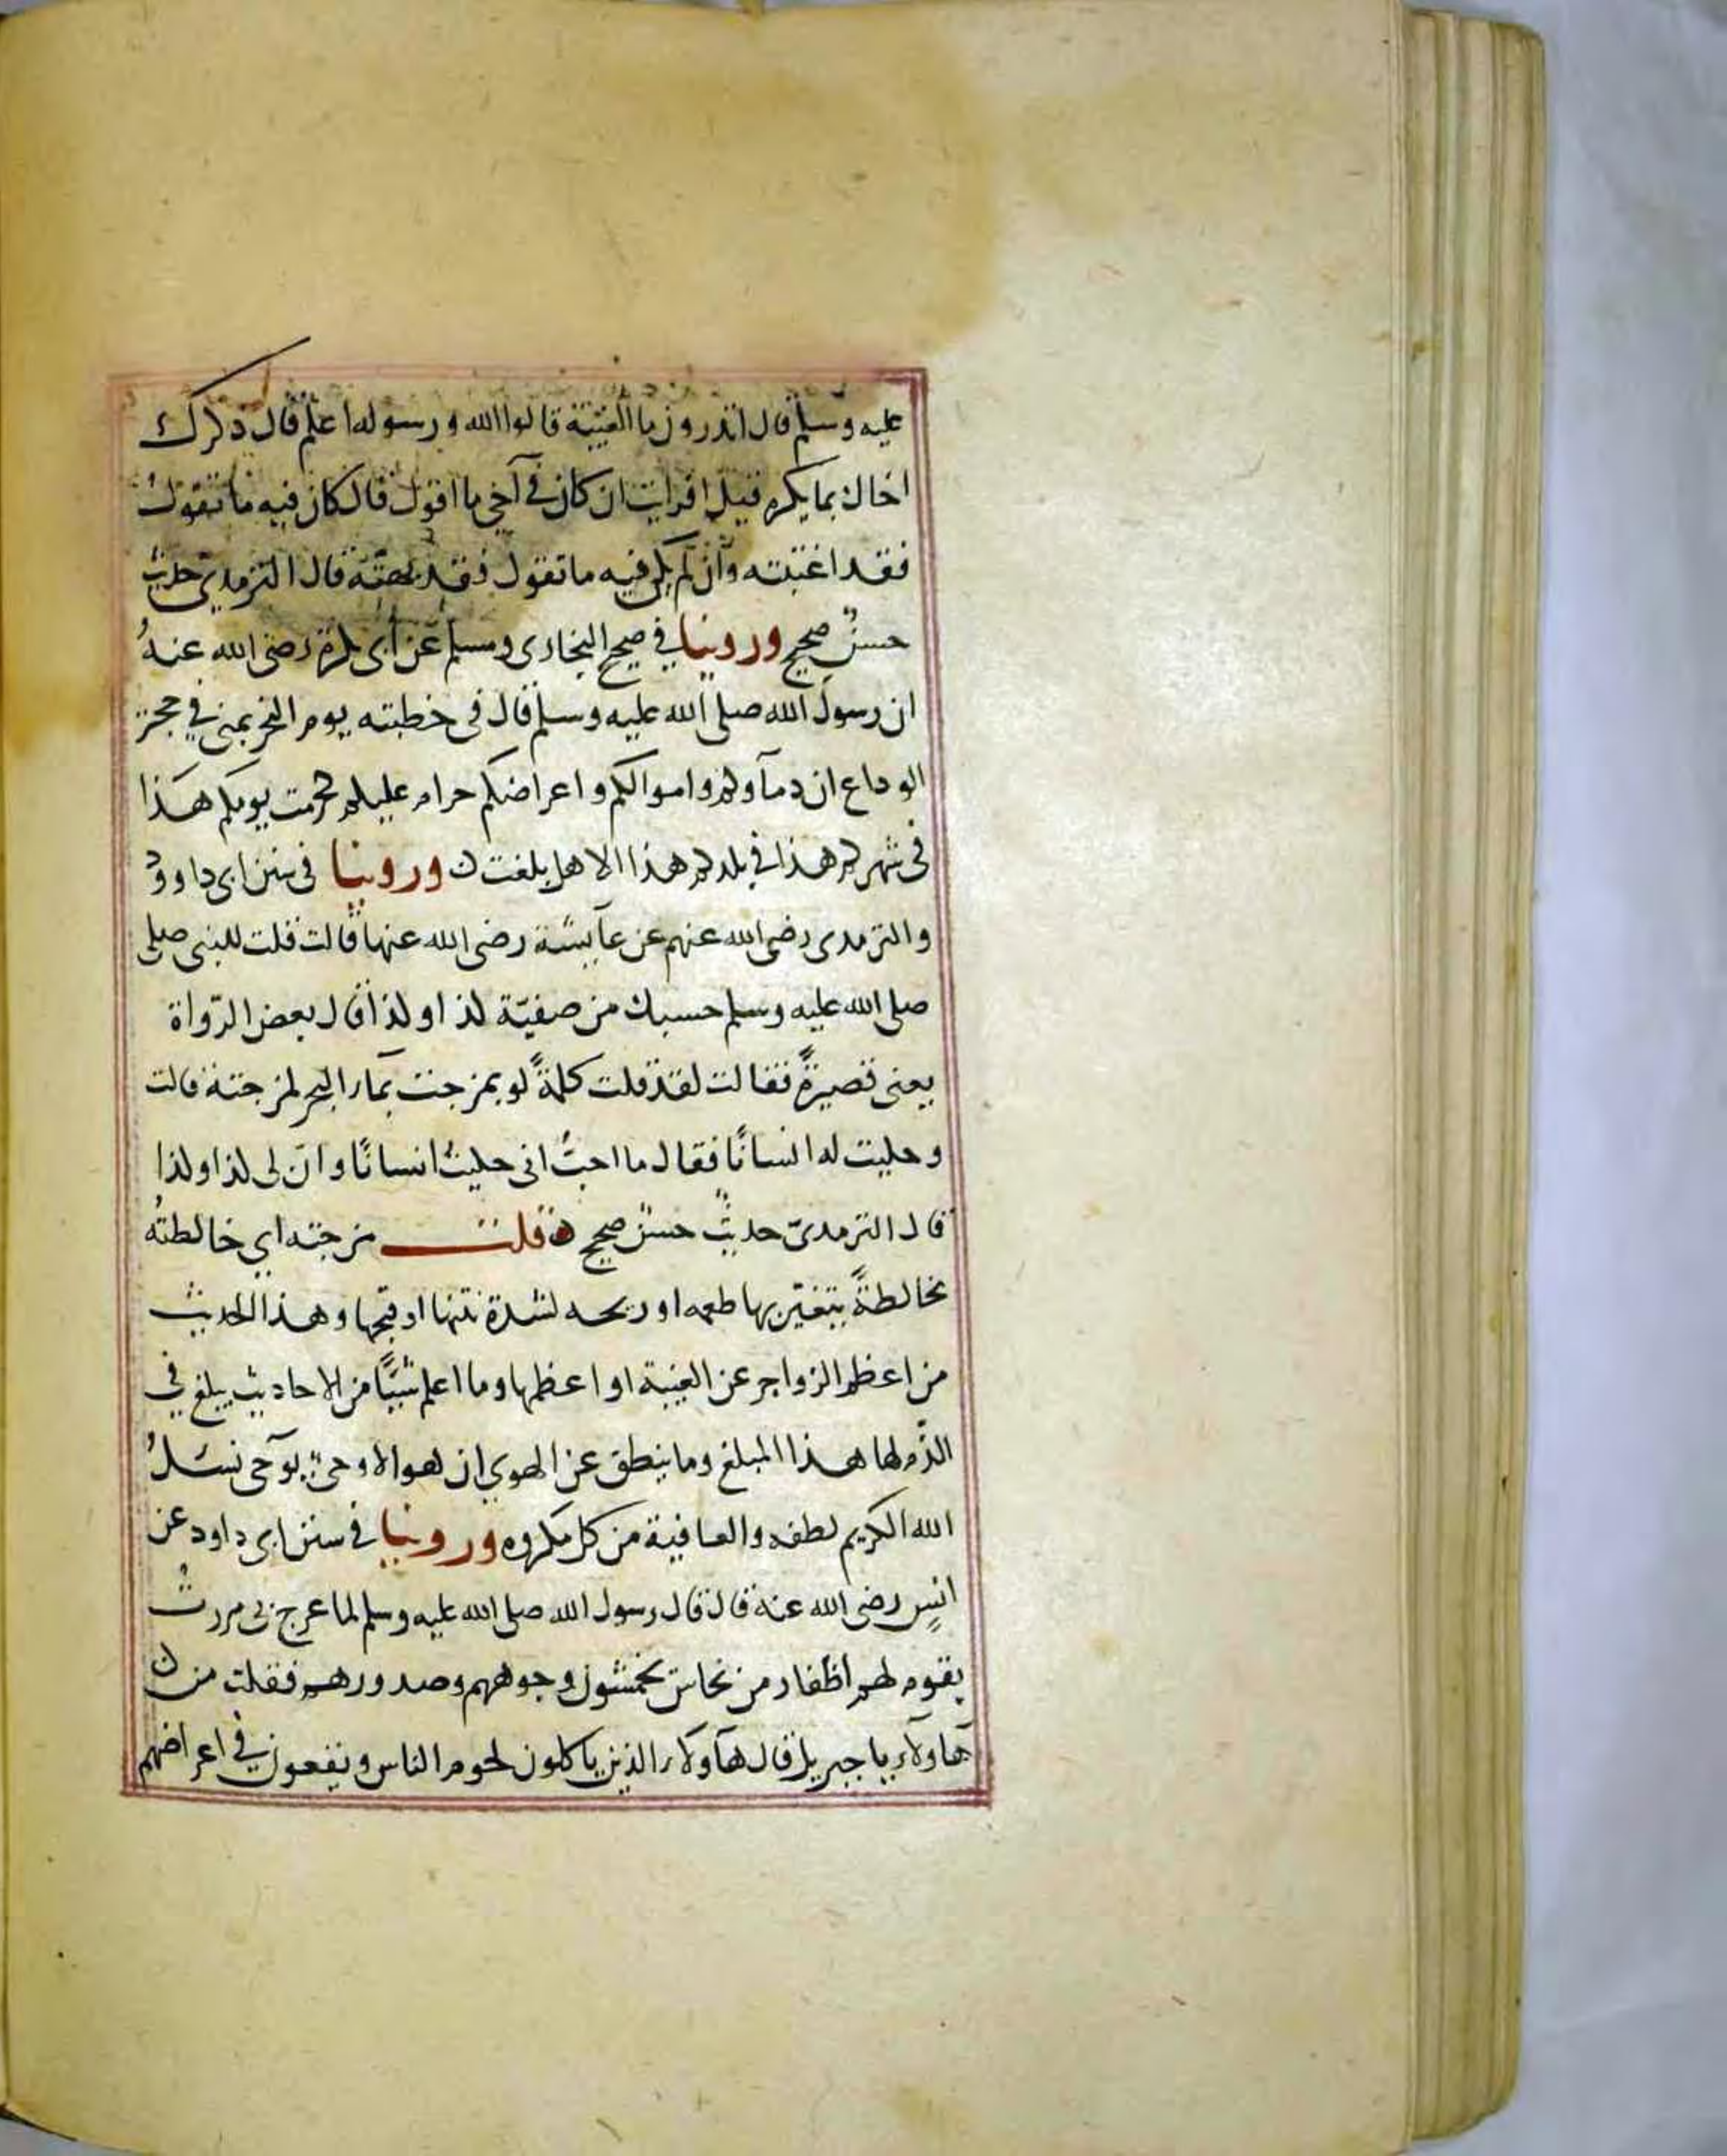 عليه وسلم قال اتدرون ما الغيبة قالوا الله ورسوله اعلم قال ذكرك
اخاك بما يكره قيل افرايت ان كان في آخي ما اقول قال كان فيه ما تقول
فقد اغتبته وان لم يكن فيه ما تقول فقد بهته قال الترمدي حديث
حسن صحيح وروينا في صحيح البخاري ومسلم عن ابي بكرة رضي الله عنه
ان رسول الله صلى الله عليه وسلم قال في خطبته يوم النحر بمنى في حجة
الوداع ان دمآوكم واموالكم واعراضكم حرام عليكم كحرمت يومكم هذا
في شهركم هذا في بلدكم هذا الا هل بلغت وروينا في سنن ابي داوود
والترمدي رضي الله عنهم عن عآيشة رضي الله عنها قالت قلت للنبي صلى
صلى الله عليه وسلم حسبك من صفيّة كذا وكذا قال بعض الرّواة
يعني قصيرةً فقالت لقد قلت كلمةً لو بمزجت بمآء البحر لمزجته قالت
وحكيت له انسانًا فقال ما احبّ اني حكيت انسانًا وانّ لي كذا وكذا
قال الترمديّ حديثٌ حسنٌ صحيح قلت مزجته اي خالطته
مخالطةً يتغيّر بها طعمه او ريحه لشدة نتنها او قبحها وهذا الحديث
من اعظم الزواجر عن الغيبة او اعظمها وما اعلم شيًا من الاحاديث يبلغ في
الذّم لها هذا المبلغ وما ينطق عن الهوي ان هو الا وحيٌ يوحى نسئلُ
الله الكريم لطفه والعافية من كل مكروه وروينا في سنن ابي داود عن
انسٍ رضي الله عنه قال قال رسول الله صلى الله عليه وسلم لما عرج بي مررت
بقوم لهم اظفار من نحاس يخمشون وجوههم وصدورهم فقلت من
هآولآء يا جبريل قال هآولآء الذين ياكلون لحوم الناس ويقعون في اعراضهم